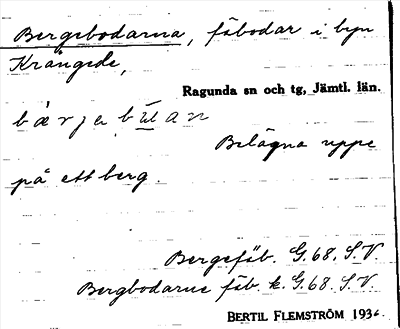 Bergebodarna, fäbodar i byn
Krångede,
Ragunda sn och tg, Jämtl. län.
bærjebútan
Belägna uppe
på ett berg.
Bergefäb. G.68. S.V.
Bergbodarne fäb. k. G.68. S.V.
BERTIL FLEMSTRÖM 1936.